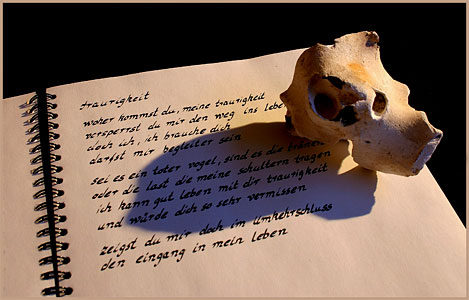 traurigkeit
woher kommst du, meine traurigkeit
versperrst du mir den weg ins leben
doch ich, ich brauche dich
darfst mir begleiter sein
sei es ein toter vogel, sind es die tränen
oder die last die meine schultern tragen
ich kann gut leben mit dir traurigkeit
und würde dich so sehr vermissen
zeigst du mir doch im umkehrschluss
den eingang in mein leben